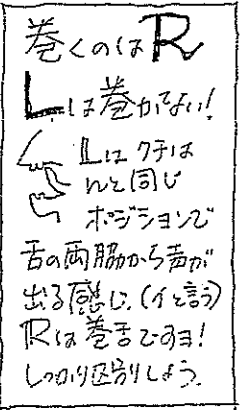 巻くのはR
Lは巻かない!
Lは クチは
nと同じ
ポジションで
舌の両脇から声が
出る感じ.(イと言う)
Rは巻舌ですヨ!
しっかり区別しよう.